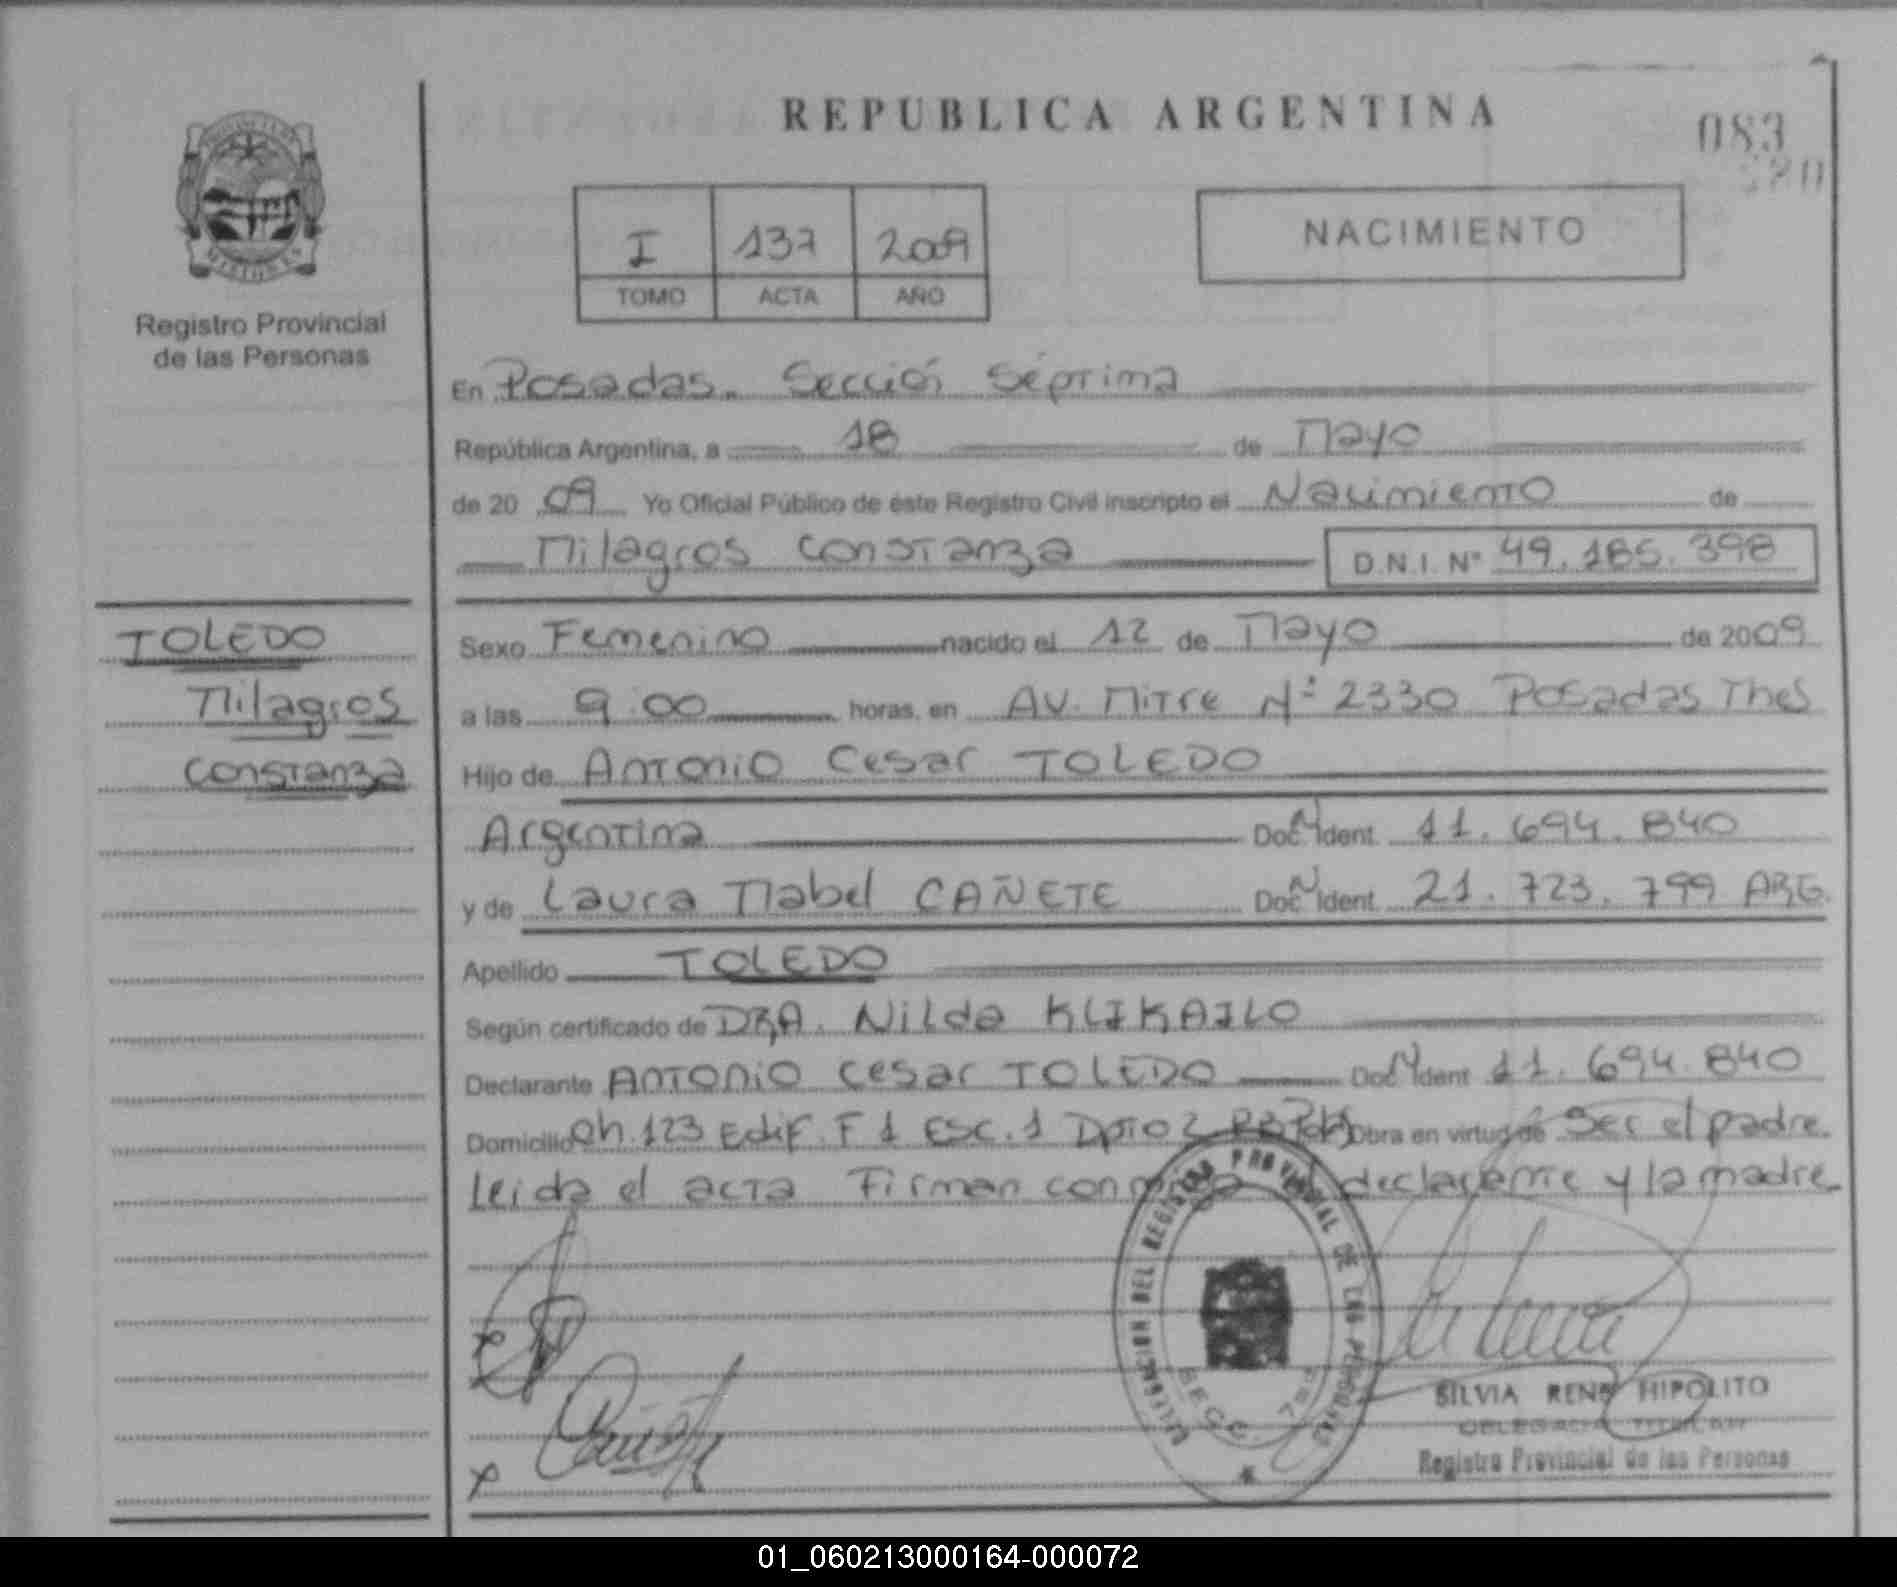 REPUBLICA ARGENTINA
083
I 137 2009
TOMO ACTA AÑO
NACIMIENTO
MISIONES
Registro Provincial
de las Personas
En Posadas. Sección Séptima
República Argentina, a 18 de Mayo
de 2009 Yo Oficial Público de éste Registro Civil inscripto el Nacimiento de
Milagros Constanza D.N.I. Nº 49.185.398
TOLEDO
Milagros
Constanza
Sexo Femenino nacido el 12 de Mayo de 2009
a las 9:00 horas, en AV. Mitre Nº 2330 Posadas Mnes
Hijo de Antonio Cesar TOLEDO
Argentina Doc. Ident. 11.694.840
y de Laura Mabel CAÑETE Doc. Ident. 21.723.799 ARG.
Apellido TOLEDO
Según certificado de DRA. Nilda KLIKAILO
Declarante Antonio Cesar TOLEDO Doc. Ident 11.694.840
Domicilio Ch.123 Edif. F 1 Esc. 1 Dpto 2 Obra en virtud de Ser el padre.
Leida el acta Firman conmigo el declarante y la madre
DELEGACION DEL REGISTRO PROVINCIAL DE LAS PERSONAS
SECC. 7ma
SILVIA RENE HIPOLITO
DELEGADA TITULAR
Registro Provincial de las Personas
01_060213000164-000072